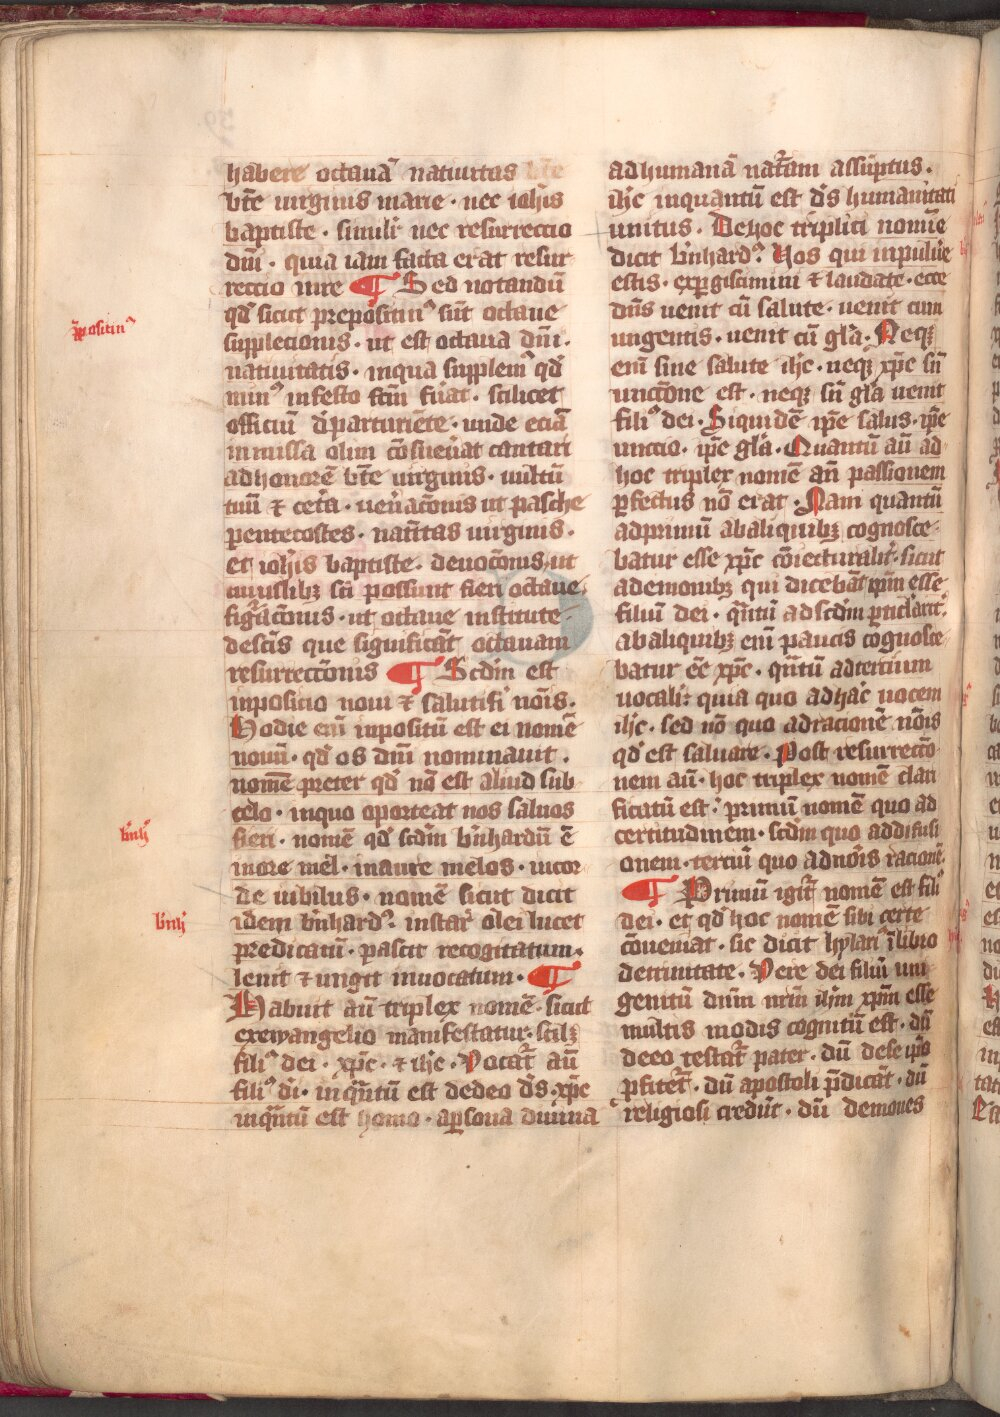 habere octauā natiuitas
bt̄e uirginis marie · nec ioh̄is
baptiste · simulr̄ nec resurreccio
dn̄i · quia iam facta erat resur
reccio iure ¶ Sed notandū
qđ sicut prepositin᷒ sūt octaue
suppletionis · ut est octaua dn̄i ·
natiuitatis · inqua supplem᷒ qđ
min᷒ infesto fcm̄ fūat · scilicet
officiū đparturiēte · unde eciā
inmissa olim cōsueūat cantari
adhonorē bt̄e uirginis · uultū
tuū ⁊ cet̄a · uen̄acōnis ut pasche
pentecostes · natītas uirginis ·
et ioh̄is baptiste · deuocōnis ut
cuiuslibꝫ sc̄i possunt fieri octaue ·
figūcōnis · ut octaue institute
descīs que significāt octauam
resurrectōnis ¶ Scđm est
inpositio noui ⁊ salutifī nōīs ·
Hodie enī inpositū est ei nomē
nouū · qđ os dn̄i nominauit ·
nomē preter qđ nō est aliud sub
celo · inquo oporteat nos saluos
fieri · nomē qđ scđm b̄nhardū ē
inore mel · inaure melos · incor
de iubilus · nomē sicut dicit
idem b̄nhard᷒ instar olei lucet
predicatū · pascit recogitatum ·
lenit ⁊ ungit inuocatum · ¶
Habuit aū triplex nomē · sicut
exewangelio manifestatur · scilꝫ
fili᷒ dei · xp̄c · ⁊ ih̄c · Vocat̄ aū
fili᷒ dī · inqn̄tū est dedeo đs · xp̄c
inqn̄tū est homo · aꝑsona diuina
adhumanā nat̄am assūptus ·
ih̄c inquantū est đs humanitati
unitus · Dehoc triplici nomīe
dicit b̄nhard᷒ Uos qui inpuluīe
estis · exꝑgiscimini ⁊ laudate · ecce
dn̄s uenit cū salute · uenit cum
ungentis · uenit cū gl̄a · Neqꝫ
enī sine salute ih̄c · neqꝫ xp̄c sn̄
unctōne est · neqꝫ sn̄ gl̄a uenit
fili᷒ dei · Siquidē ip̄e salus · ip̄e
unctio · ip̄e gl̄a · Quantū aū ad
hoc triplex nomē an̄ passionem
ꝑfectus nō erat · Nam quantū
adprimū abaliquibꝫ cognosce
batur esse xp̄c cōiecturalit̄ · sicut
ademonibꝫ qui dicebāt ip̄m esse
filiū dei · qn̄tū adscđm ꝑticlarit̄
abaliquibꝫ enī paucis cognosce
batur ēē xp̄c · qn̄tū adtertium
uocalit̄ quia quo adhāc uocem
ih̄c · sed nō quo adracionē nōīs
qđ est saluare · Post resurrectō
nem aū · hoc triplex nomē clari
ficatū est · primū nomē quo ad
certitudinem · scđm quo addifusi
onem · terciū quo adnōīs racionē ·
¶ Primū igit̄ nomē est fili᷒
dei · et qđ hoc nomē sibi certe
cōueniat · sic dicit hylari᷒ īlibro
detrinitate · Vere dei filiū uni
genitū dn̄m nrm̄ ih̄m xp̄m esse
multis modis cognitū est · dū
deeo testat̄ pater · dū dese ip̄o
ꝓfitet̄ · dū apostoli p̄dicāt · dū
religiosi credūt · dū demones
p̄positin᷒
b̄nh᷒
b̄nh᷒